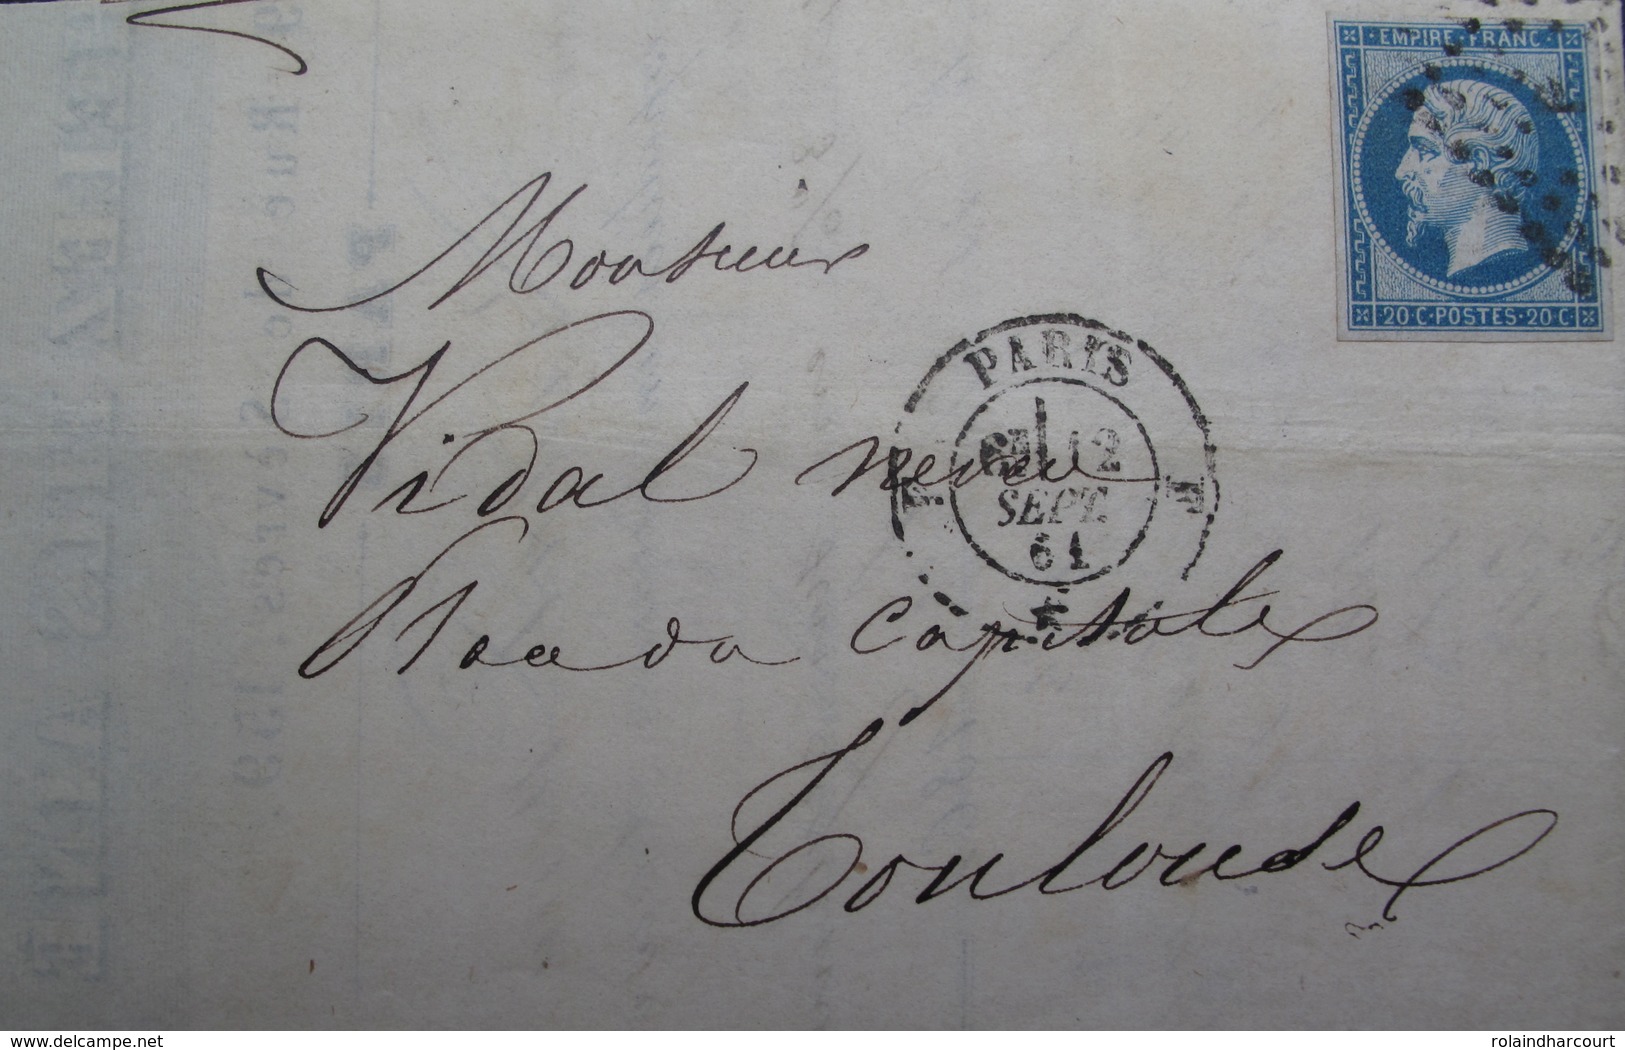 EMPIRE · FRANC
20 C · POSTES · 20 C
Monsieur
Vidal neveu
Place du Capitole
Toulouse
PARIS
12
SEPT.
61
F F
Rue de Sèvres 159
www.delcampe.net
rolaindharcourt